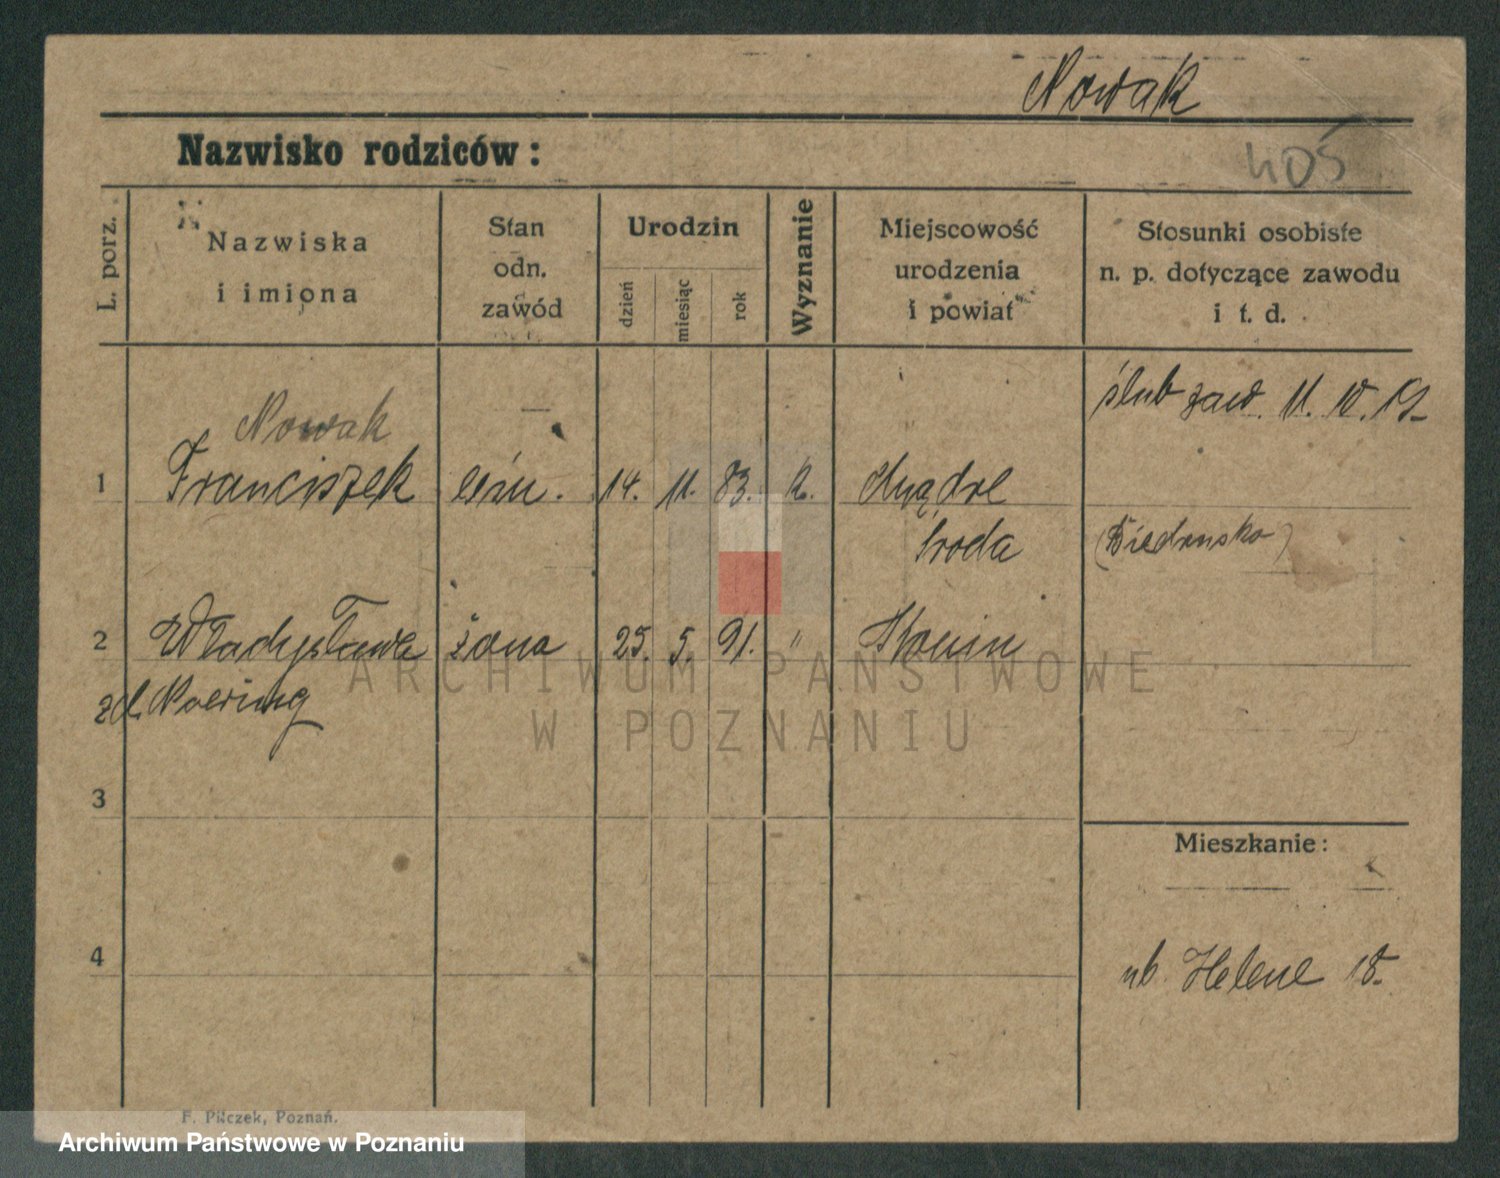 Nowak
Nazwisko rodziców:
405
L. porz.
Nazwiska i imiona
Stan odn. zawód
Urodzin
dzień
miesiąc
rok
Wyznanie
Miejscowość urodzenia i powiat
Stosunki osobiste n. p. dotyczące zawodu i t. d.
ślub zaw. 11. IV. 19
Nowak
1 Franciszek 14. 11. 83. k. Mądre
Środa
(Biedrusko)
2 Władysława żona 25. 5. 91. "
zd.
3
Mieszkanie:
4
Helene 18
F. Pilczek, Poznań.
ARCHIWUM PAŃSTWOWE
W POZNANIU
Archiwum Państwowe w Poznaniu